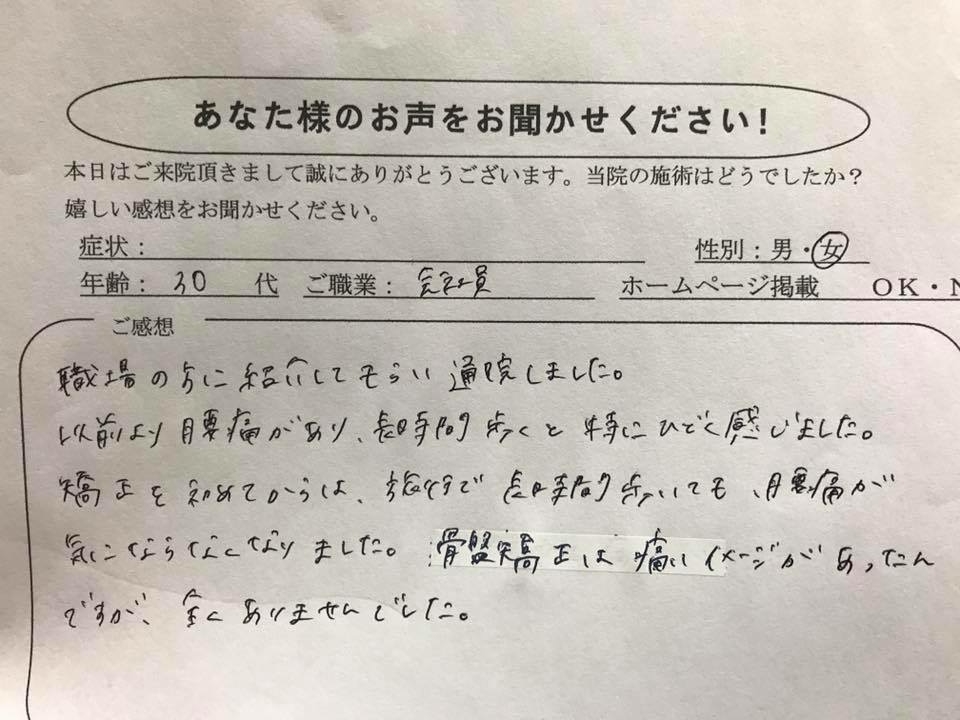 あなた様のお声をお聞かせください！
本日はご来院頂きまして誠にありがとうございます。当院の施術はどうでしたか？
嬉しい感想をお聞かせください。
症状： 性別：男・女
年齢：30代 ご職業：会社員 ホームページ掲載 OK・N
ご感想
職場の方に紹介してもらい通院しました。
以前より腰痛があり、長時間歩くと特にひどく感じました。
矯正を初めてからは、旅行で長時間歩いても、腰痛が
気にならなくなりました。骨盤矯正は痛いイメージがあったん
ですが、全くありませんでした。